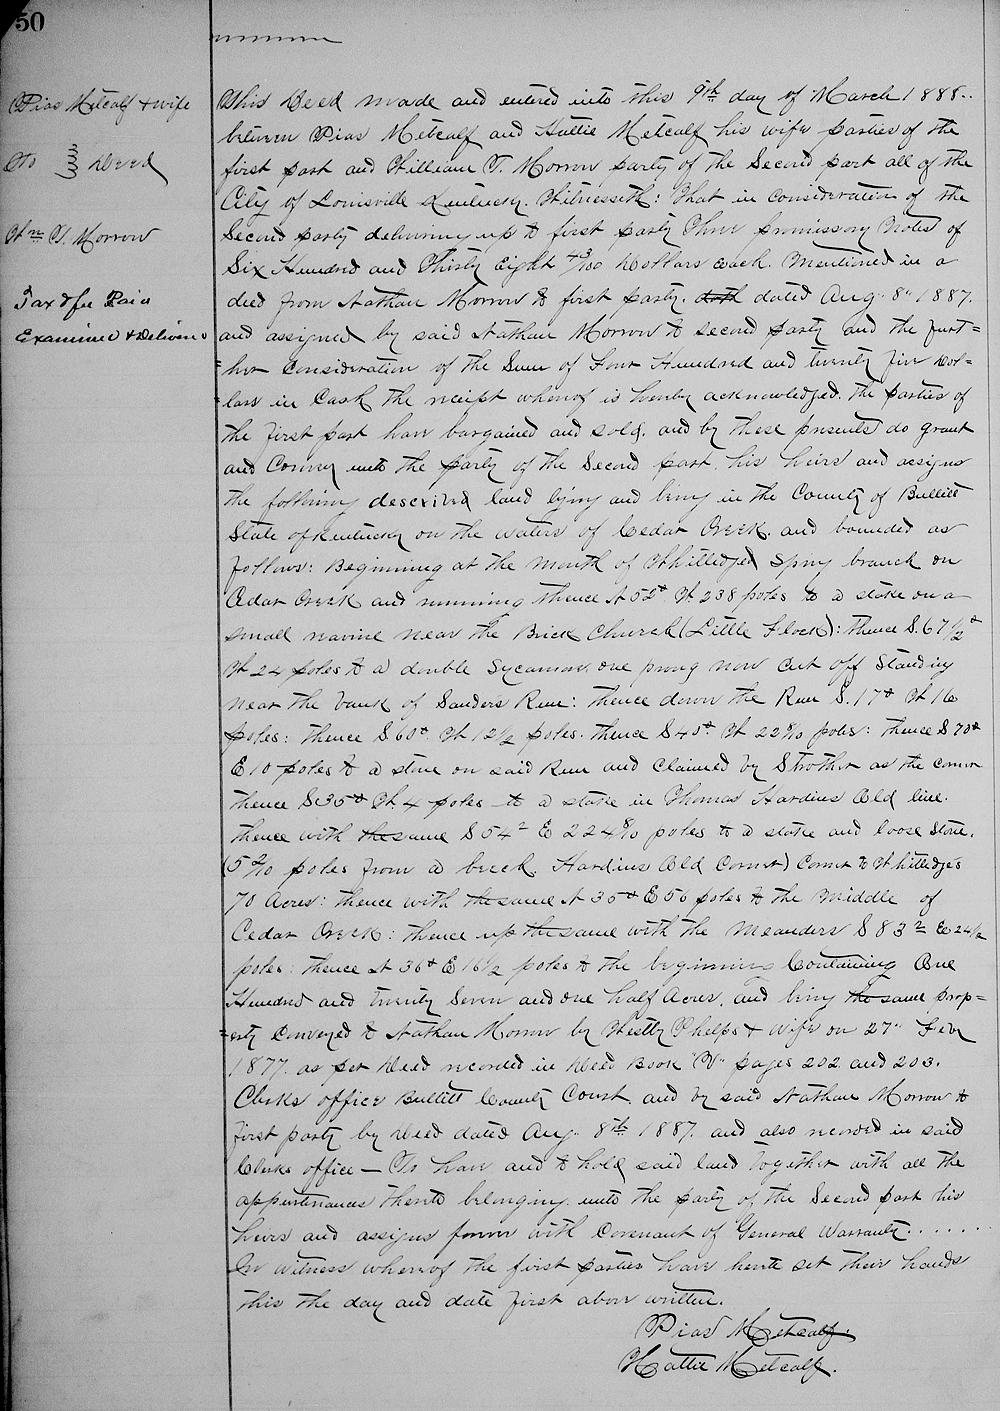 50
Pias Metcalf & wife
To } Deed
Wm T. Morrow
Tax & fee Paid
Examined & Delivered
This Deed made and entered into this 9th day of March 1888..
between Pias Metcalf and Hattie Metcalf his wife parties of the
first part and William T. Morrow party of the Second part all of the
City of Louisville Kentucky. Witnesseth: That in consideration of the
Second party delivering up to first party Three promissory Notes of
Six Hundred and Thirty Eight 43/100 Dollars each. Mentioned in a
deed from Nathan Morrow to first party. doth dated Aug. 8" 1887.
and assigned by said Nathan Morrow to Second party and the furt=
=her consideration of the Sum of Four Hundred and twenty five Dol=
=lars in Cash the receipt whereof is hereby acknowledged. the parties of
the first part have bargained and sold. and by these presents do grant
and Convey unto the party of the Second part. his heirs and assigns
the following described land lying and being in the County of Bullitt
State of Kentucky on the waters of Cedar Creek. and bounded as
follows: Beginning at the Mouth of Whitledges Spring branch on
Cedar Creek and running thence N 52° W 238 poles to a stake on a
small ravine near the Brick Church (Little Flock): thence S. 67 1/2°
W 24 poles to a double Sycamore. one prong now cut off Standing
near the bank of Sanders Run: thence down the Run S. 17° W 16
poles: thence S 60° W 12 1/2 poles. thence S 40° W 22 8/10 poles: thence S 70°
E 10 poles to a stone on said Run and Claimed by Strother as the corner
thence S 35° W. 4 poles to a stake in Thomas Hardins Old line.
thence with the same S 54° E 224 8/10 poles to a stake and loose Stone.
(5 2/10 poles from a beech. Hardins Old Corner) Corner to Whitledge's
70 Acres: thence with the same N 35° E 56 poles to the Middle of
Cedar Creek: thence up the same with the Meanders S 83° E 24 1/2
poles: thence N 36° E 16 1/2 poles to the beginning Containing One
Hundred and twenty Seven and one half Acres. and being the same prop=
=erty Conveyed to Nathan Morrow by Westly Phelps & Wife on 27" Feby
1877. as per Deed recorded in Deed Book "V" pages 202 and 203.
Clerks office Bullitt County Court and by said Nathan Morrow to
first party by Deed dated Aug. 8th 1887. and also recorded in said
Clerks office — To have and to hold said land together with all the
appurtenances thereto belonging unto the party of the Second part his
heirs and assigns forever with Covenant of General Warranty.......
In witness whereof the first parties have hereto set their hands
this the day and date first above written.
Pias Metcalf.
Hattie Metcalf.